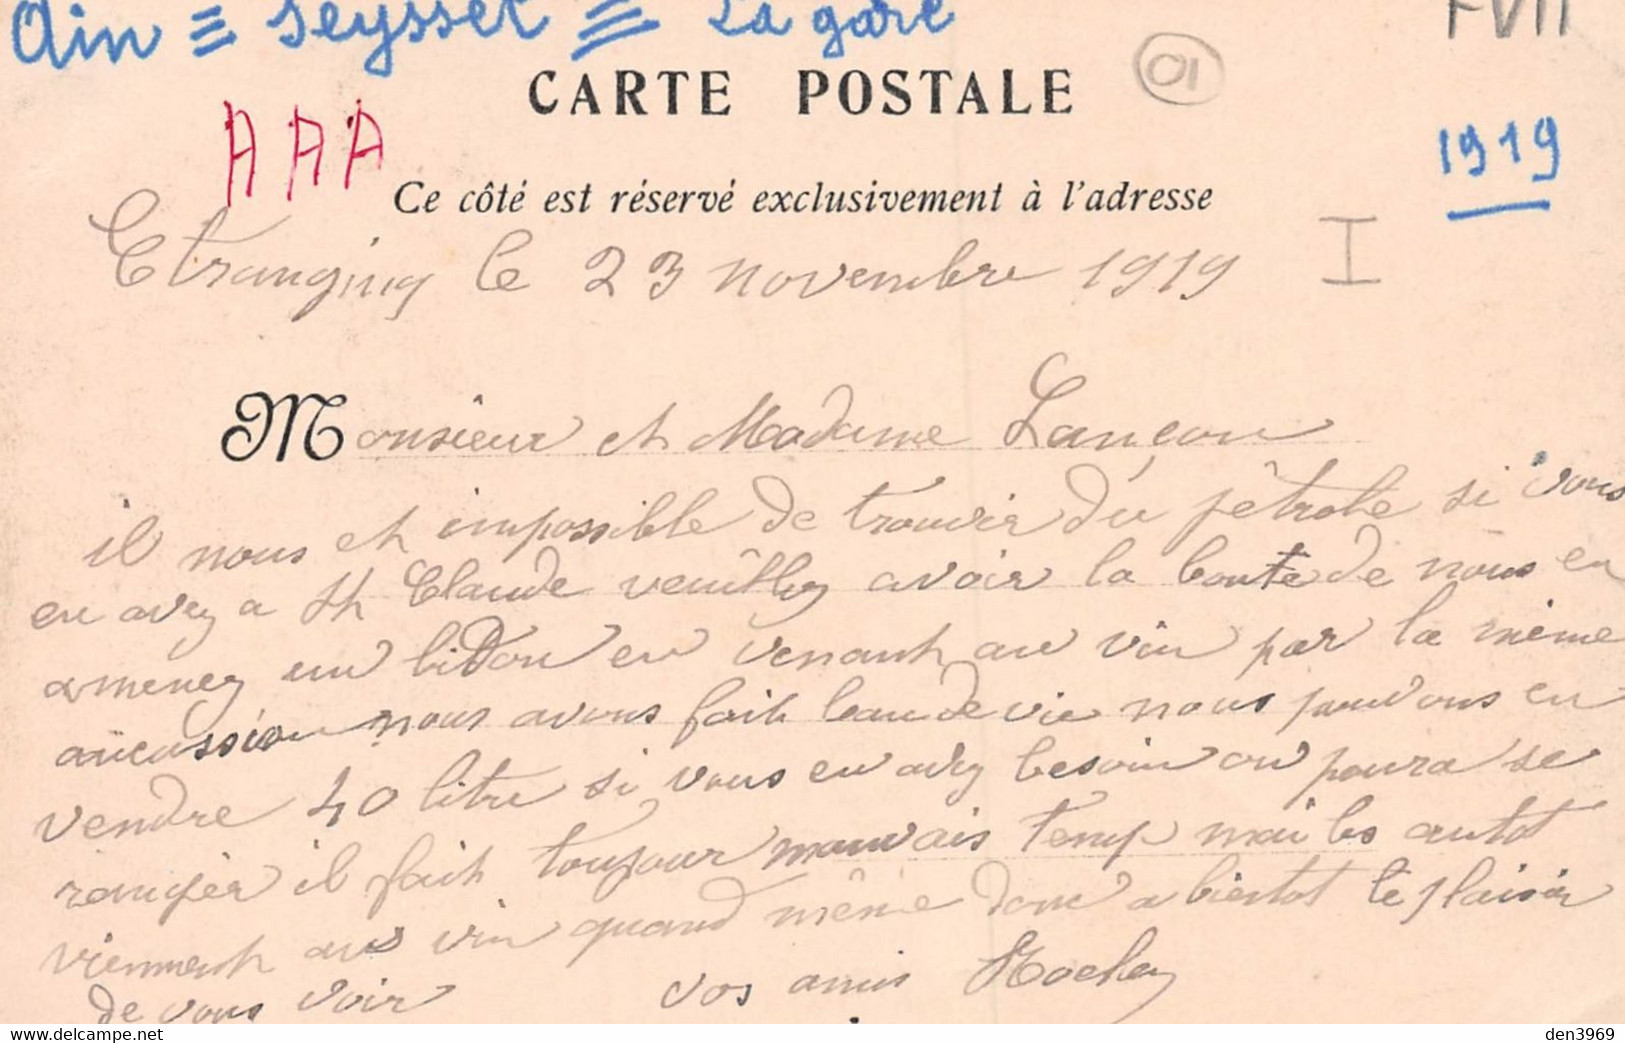 Ain = Seyssel = La gare
FVII
CARTE POSTALE
01
AAA
1919
Ce côté est réservé exclusivement à l'adresse
le 23 novembre 1919
I
Monsieur et Madame Lançon
il nous et impossible de trouvèr du pétrole si vous
en avez a St Claude veuillez avoir la bonte de nous en
amenez un bidon en venant au vin par la même
nous avons fait leaudevie nous pouvons en
vendre 40 litre si vous en avez besoin on poura se
rangér il fait toujour mauvais temp mai les autot
viennent au vin quand même donc a bientot le plaisir
de vous voir vos amis
den3969